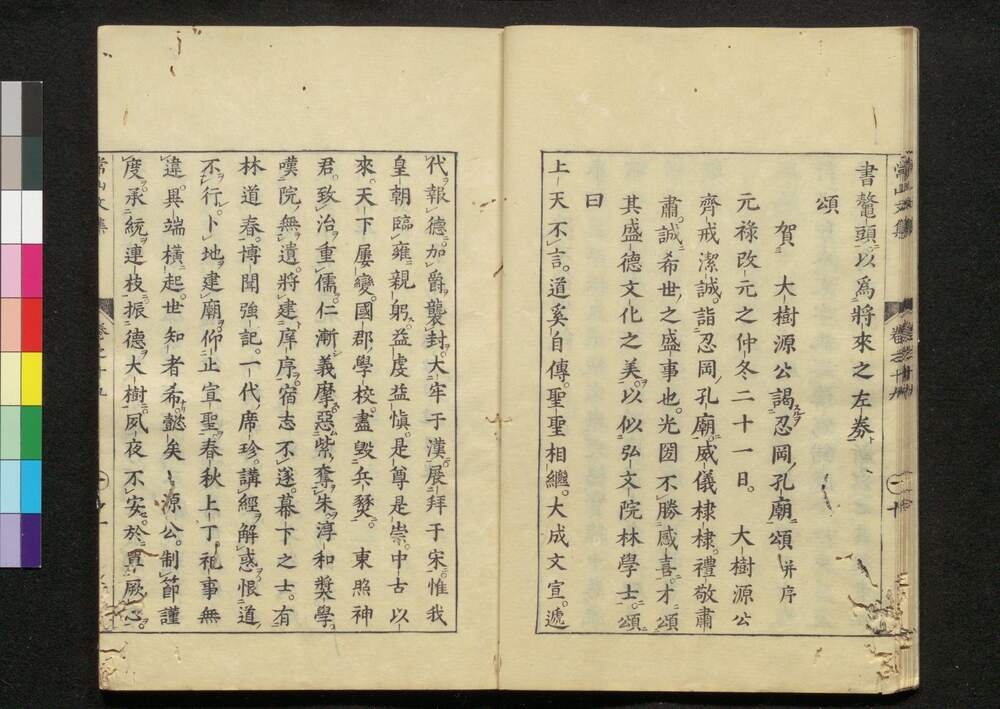 書鼇頭。以爲將來之左券
頌
賀 大樹源公謁忍岡孔廟頌并序
元祿改元之仲冬二十一日。大樹源公
齊戒潔誠。詣忍岡孔廟。威儀棣棣。禮敬肅
肅。誠希世之盛事也。光圀不勝感喜。才頌
其盛德文化之美。以似弘文院林學士。頌
曰
上天不言。道奚自傳。聖聖相繼。大成文宣。遞
代報德。加爵襲封。大牢于漢。展拜于宋。惟我
皇朝臨雍親躬。益虔益愼。是尊是崇。中古以
來。天下屢變。國郡學校。盡毀兵燹。東照神
君。致治重儒。仁漸義摩。惡紫奪朱。淳和奬學。
嘆院無遺。將建庠序。宿志不遂。幕下之士。有
林道春。博聞強記。一代席珍。講經解惑。恨道
不行。卜地建廟。仰止宣聖。春秋上丁。祀事無
違。異端橫起。世知者希。懿矣源公。制節謹
度。承統連枝。振德大樹。夙夜不安。於單厥心。
常山文集
卷之十九